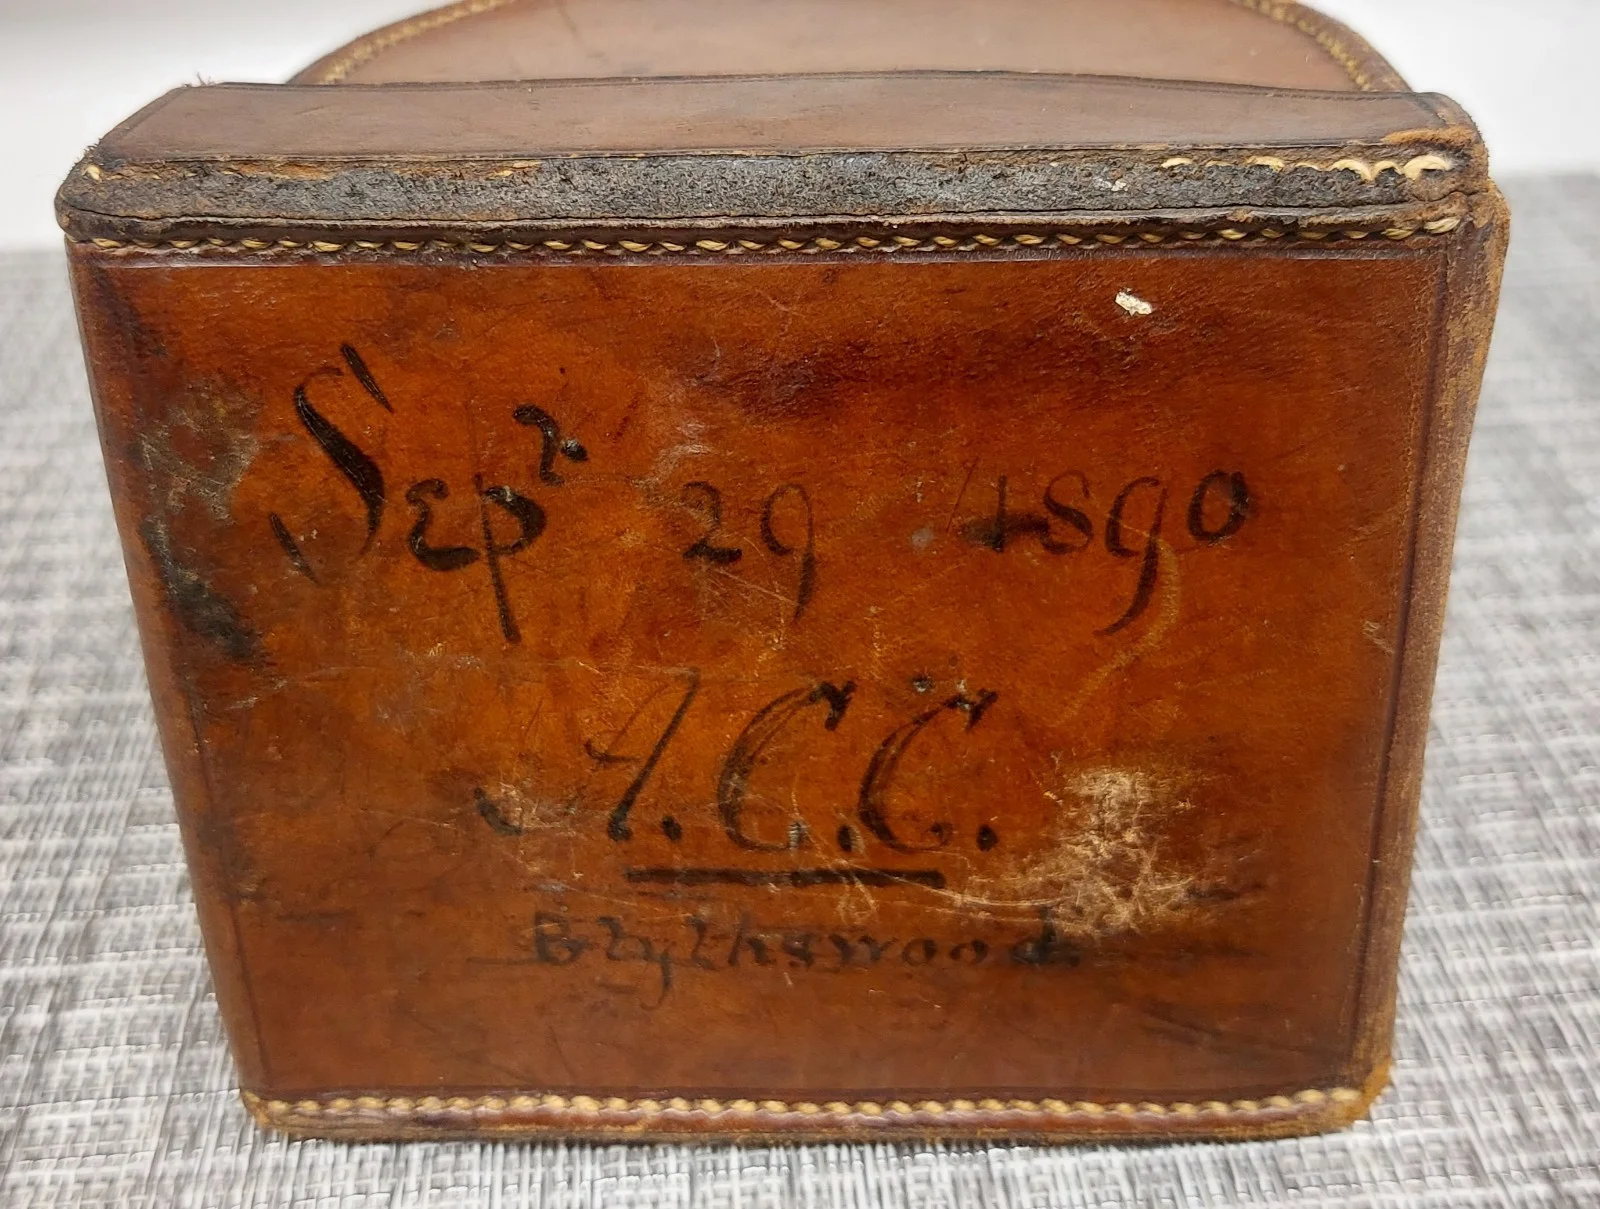 Sepr 29 1890
A.C.C.
Blythswood.